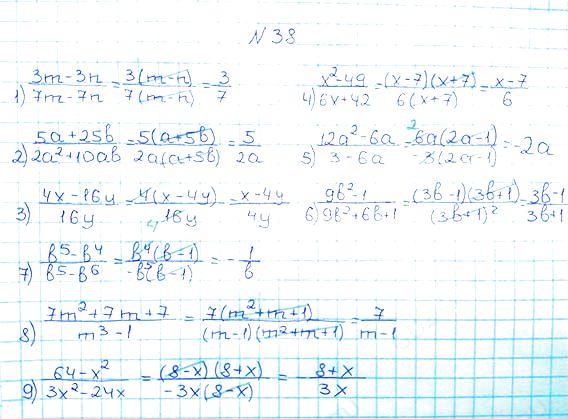 N 38
1) (3m-3n)/(7m-7n) = 3(m-n)/7(m-n) = 3/7 4) (x²-49)/(6x+42) = (x-7)(x+7)/6(x+7) = (x-7)/6
2) (5a+25b)/(2a²+10ab) = 5(a+5b)/2a(a+5b) = 5/2a 5) (12a²-6a)/(3-6a) = 2 6a(2a-1)/-3(2a-1) = -2a
3) (4x-16y)/16y = 4(x-4y)/16y 4 = (x-4y)/4y 6) (9b²-1)/(9b²+6b+1) = (3b-1)(3b+1)/(3b+1)² = (3b-1)/(3b+1)
7) (b⁵-b⁴)/(b⁵-b⁶) = b⁴(b-1)/-b⁵(b-1) = -1/b
8) (7m²+7m+7)/(m³-1) = 7(m²+m+1)/(m-1)(m²+m+1) = 7/(m-1)
9) (64-x²)/(3x²-24x) = (8-x)(8+x)/-3x(8-x) = (8+x)/3x